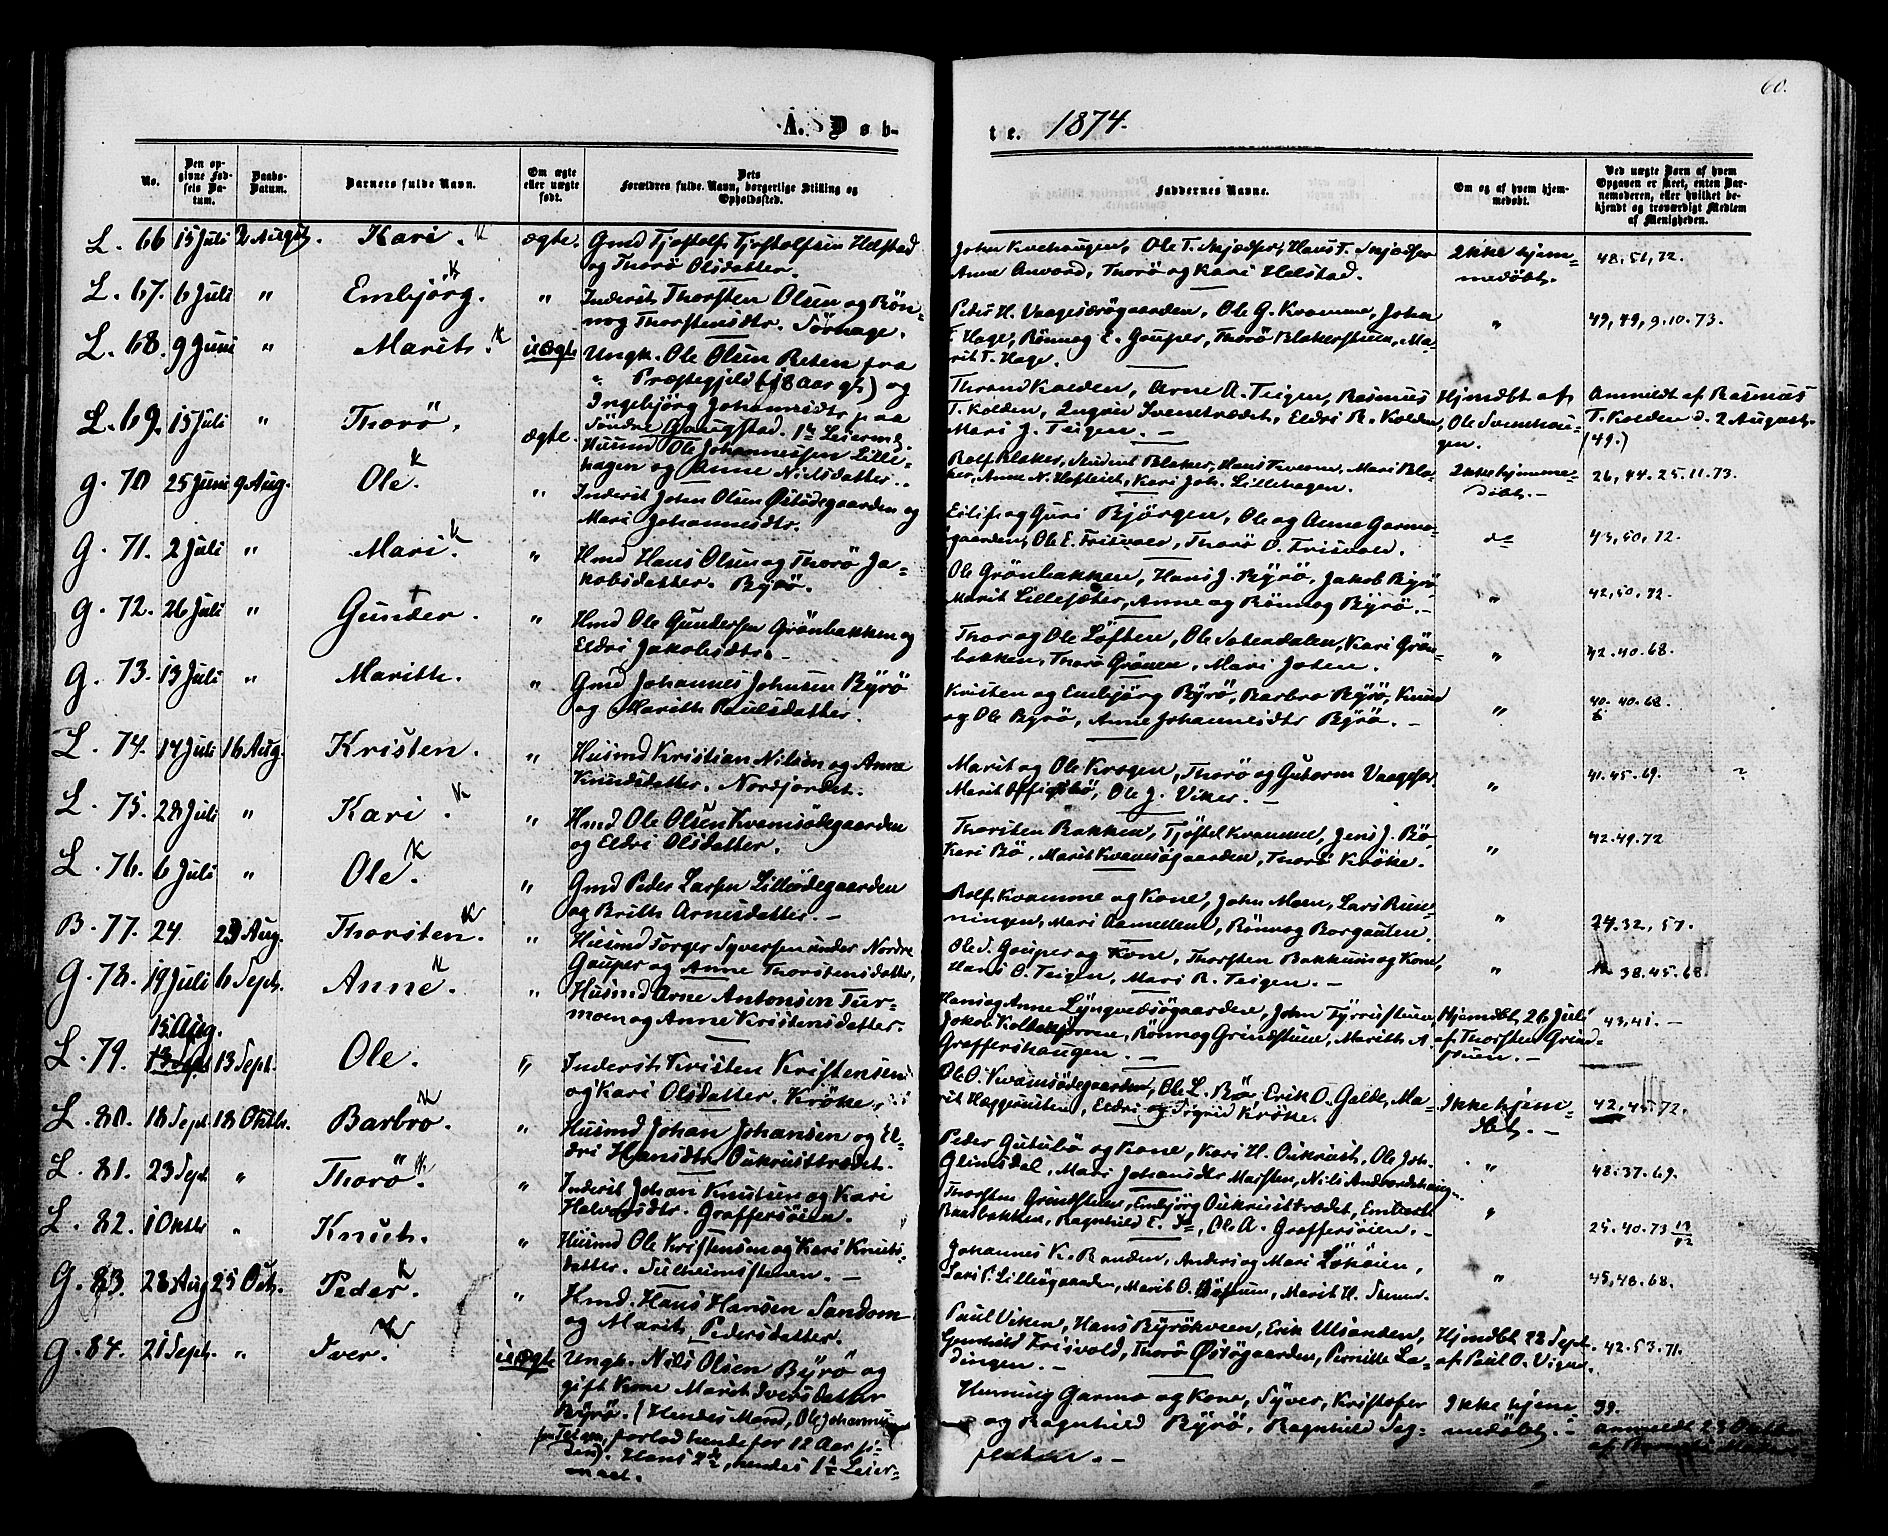 60.
A. Døb-
te. 1874.
No.
Den op-
givne Fød-
sels Da-
tum.
Daabs-
Datum.
Barnets fulde Navn.
Om ægte
eller uægte
født.
Dets
Forældres fulde Navn, borgerlige Stilling og
Opholdssted.
Faddernes Navne.
Om og af hvem hjem-
medøbt.
Ved uægte Børn af hvem
Opgaven er skeet, enten Bar-
nemoderen, eller hvilket be-
kjendt og troværdigt Medlem
af Menigheden.
L. 66 15 Juli 2 August. Kari. ægte. Gmd Tjøstolf Tjøstolfsen Helstad
og Thorø Olsdatter.
Anne Anvord, Thorø og Kari Helstad.
Ikke hjem-
medøbt.
48.51,72.
L. 67. 6 Juli " Embjörg. " Inderst Thorsten Olsen og Rön-
nog Thorstensdtr. Sørhage.
Peder H. Vaagesærøgaarden, Ole G. Kvamme, John
T. Hage, Rønnog E. Gouper, Thorø Blakerstuen, Ma-
rit T. Hage.
" 49,49,9.10.73.
L. 68. 9 Juni " Marit. uægte Ungk. Ole Olsen Reten fra
" Præstegjeld (18 Aar gl.) og
Ingebjörg Johannesdtr paa
Søndre Gaugstad. 1ste Leierm.
Thrond Kolden, Arne A. Teigen, Rasmus
T. Kolden, Ingrid Svenstrædet, Eldri R. Kolden,
Mari J. Teigen.
Hjmdbt af
Ole Svenhau-
gen.
Anmeldt af Rasmus
T. Kolden d. 2 August.
(49.)
L. 69. 15 Juli " Thorö. ægte. Husmd Ole Johannessen Lille-
hagen og Anne Nilsdatter.
Rolf Blaker, Student Blaker, Hans Tveom, Mari Bla-
ker, Anne N. Hofteiet, Kari Joh. Lillehagen.
Ikke hjemme-
døbt.
26,44.25.11.73.
G. 70 25 Juni 9 Aug. Ole. " Inderst John Olsen Østødegaarden og
Mari Johannesdtr.
Eilif og Guri Bjørgen, Ole og Anne Garmo-
øgaarden, Ole E. Frisvold, Thorø O. Frisvold.
do 43,50,72.
G. 71. 2 Juli " Mari. " Hmd Hans Olsen og Thorø Ja-
kobsdatter. Byrø.
Ole Grønbakken, Hans J. Byrø, Jakob Byrø
Marit Lillesæter, Anne og Rønnog Byrø.
" 42,50.72.
G. 72. 26 Juli " Gunder. " Hmd Ole Gundersen Grønbakken og
Eldri Jakobsdtr.
Thor og Ole Løften, Ole Solendalen, Kari Grøn-
bakken, Thorø Grønen, Mari Joten.
" 42.40.68.
G. 73. 13 Juli " Marith. " Gmd Johannes Johnsen Byrø
og Marith Paulsdatter.
Kristen og Embjørg Byrø, Barbro Byrø, Knud
og Ole Byrø, Anne Johannesdtr Byrø.
" 40.40.68.
L. 74. 14 Juli 16 Aug. Kristen. " Husmd Kristian Nilsen og Anne
Knudsdatter. Nordjordet.
Marit og Ole Krogen, Thorø og Gutorm Vaagesar
Marit Offigsbø, Ole J. Viker.
" 41.45.69.
L. 75. 28 Juli " Kari. " Hmd Ole Olsen Kvamsødegaarden
og Eldri Olsdatter.
Thorsten Bakken, Tjøstel Kvamme, Jens J. Bø
Kari Bø, Marit Kvamsøgaarden, Thorø Krøke.
" 42.49.72
L. 76. 6 Juli " Ole. " Gmd Peder Larsen Lilleødegaarden
og Brith Arnesdatter.
Rolf Kvamme og Kone, John Moen, Lars Run-
ningen, Mari Aamellem, Rønnog Borgauten.
" 24.32,57.
B. 77. 24 23 Aug. Thorsten. " Husmd Torger Syversen under Nordre
Gouper og Anne Thorstensdatter,
Ole S. Gouper og Kone, Thorsten Bakkum og Kone,
Hans O. Teigen, Mari R. Teigen.
" 38.45.68.
G. 78. 19 Juli 6 Sept. Anne. " Husmd Arne Antonsen Fur-
moen og Anne Kristensdatter.
Hans og Anne Lyngvedsøgaarden, John Tyrristuen,
Jakob Kolbekjønn, Rønnog Grindstuen, Marith A.
Graffershaugen.
Hjmdbt. 26 Juli
af Thorsten Grind-
stuen.
43,41.
15 Aug.
L. 79. 13 Sept. Ole. " Inderst Kristen Kristensen
og Kari Olsdatter. Krøke.
Ole O. Kvamsødegaarden, Ole L. Bø, Erik O. Galde, Ma-
rit Hæggerusten, Eldri og Sigrid Krøke.
Ikke hjem-
dbt.
42,45.72.
L. 80. 18 Sept. 18 Oktbr. Barbro. " Husmd Johan Johansen og El-
dri Hansdtr Oukrusttrædet.
Peder Gutubø og Kone, Kari H. Oukrust, Ole Joh.
Glimsdal, Mari Johansdtr Marsten, Nils Andvordshaugen
" 48.37.69.
L. 81. 23 Sept. " Thorö. " Inderst Johan Knutsen og Kari
Halvorsdtr. Graffersøien.
Thorsten Grindstuen, Embjørg Oukrusttrædet, Embret
Baasbakken, Ragnhild E. do, Ole A. Graffersøien.
" 25.40.73
L. 82. 1 Oktbr " Knut. " Husmd Ole Kristensen og Kari Knuts-
datter. Sulheimsstenen.
Johannes K. Randen, Anders og Mari Løkøien,
Lars P. Lilleøgaarden, Marit O. Bøstum, Marit H. Stenen.
" 45,48.68.
G. 83. 28 Aug 25 Oct. Peder. " Hmd. Hans Hansen Sandom
og Marit Pedersdatter.
Paul Viken, Hans Byrøkveen, Erik Ulsanden,
Gunhild Frisvold, Thorø Østøgaarden, Pernille La-
dingen.
Hjmdbt 28 Sept.
af Paul O. Vigen
42.53.71.
G. 84. 21 Sept. " Iver. uægte Ungk. Nils Olsen Byrø og
gift Kone Marit Iversdatter
Byrø. (Hendes Mand, Ole Johannes
forlod hende for 12 Aar si-
den). Hans 2de, hendes 1ste Leier-
maal.
Henning Garmo og Kone, Syver, Kristofer
og Ragnhild Byrø, Ragnhild Seg-
flaten.
Ikke hjem-
medøbt.
39.
anmeldt 25 Oktbr
af Barnets Moder